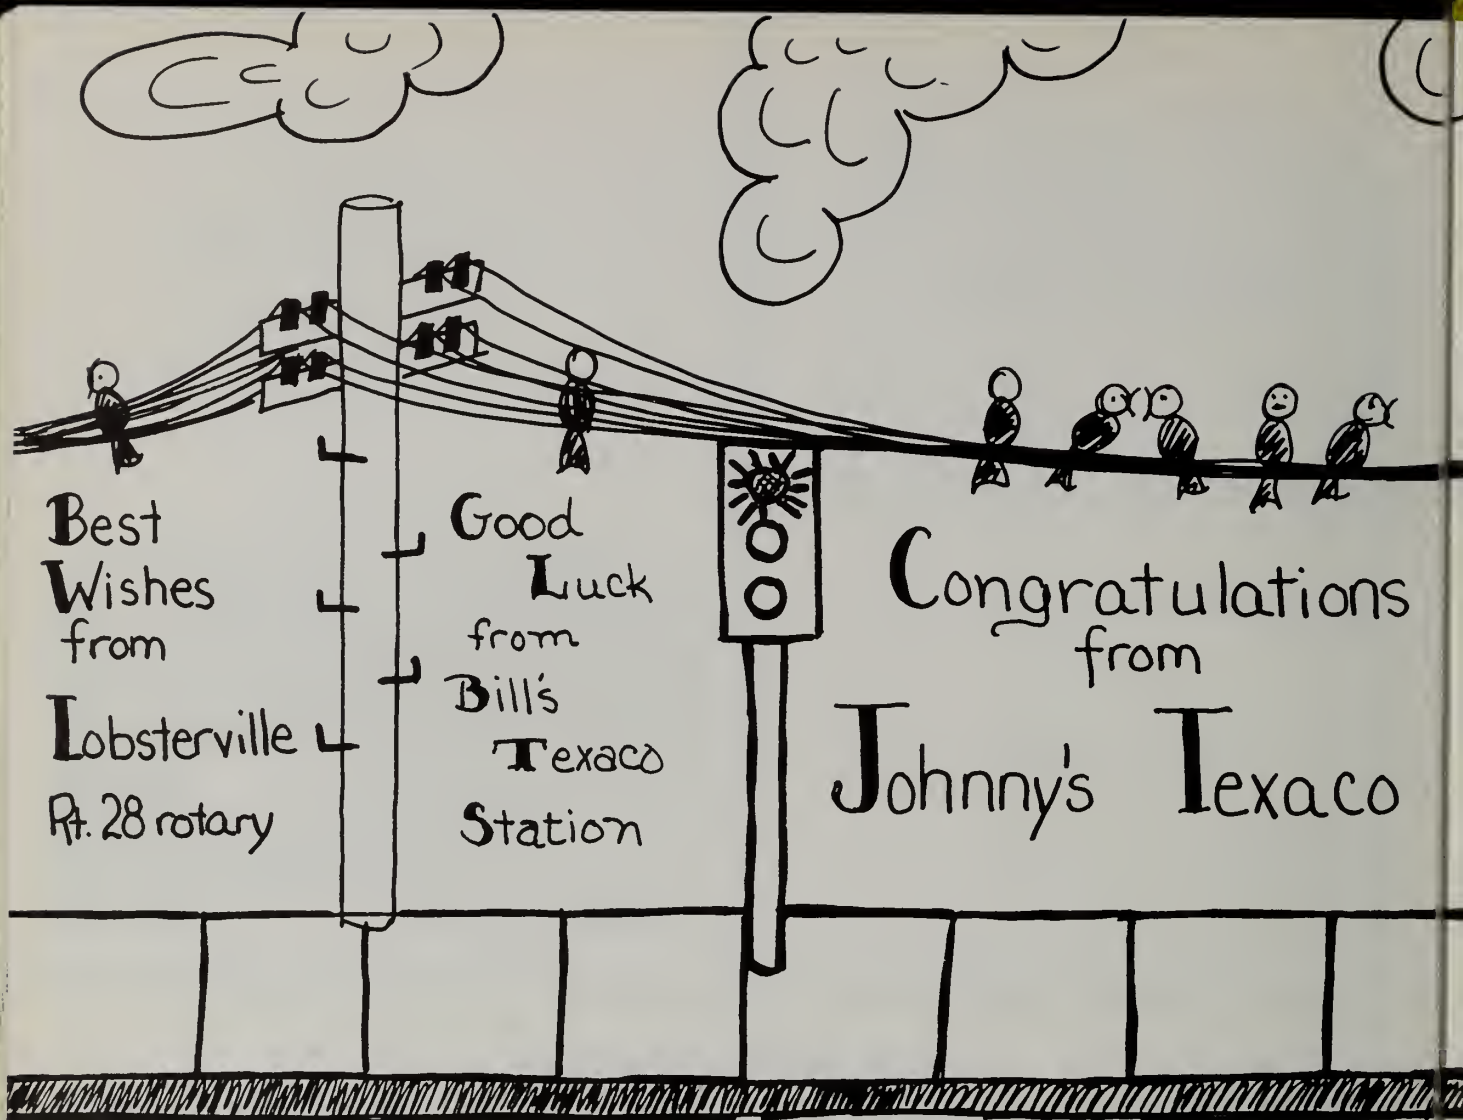 Best
Wishes
from
Lobsterville
Rt. 28 rotary
Good
Luck
from
Bill's
Texaco
Station
Congratulations
from
Johnny's Texaco